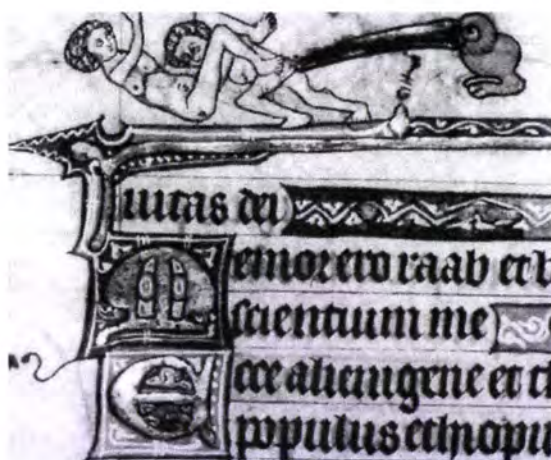 iuitas dei
Memor ero raab et b
scientium me
Ecce alienigene et t
populus ethiopu